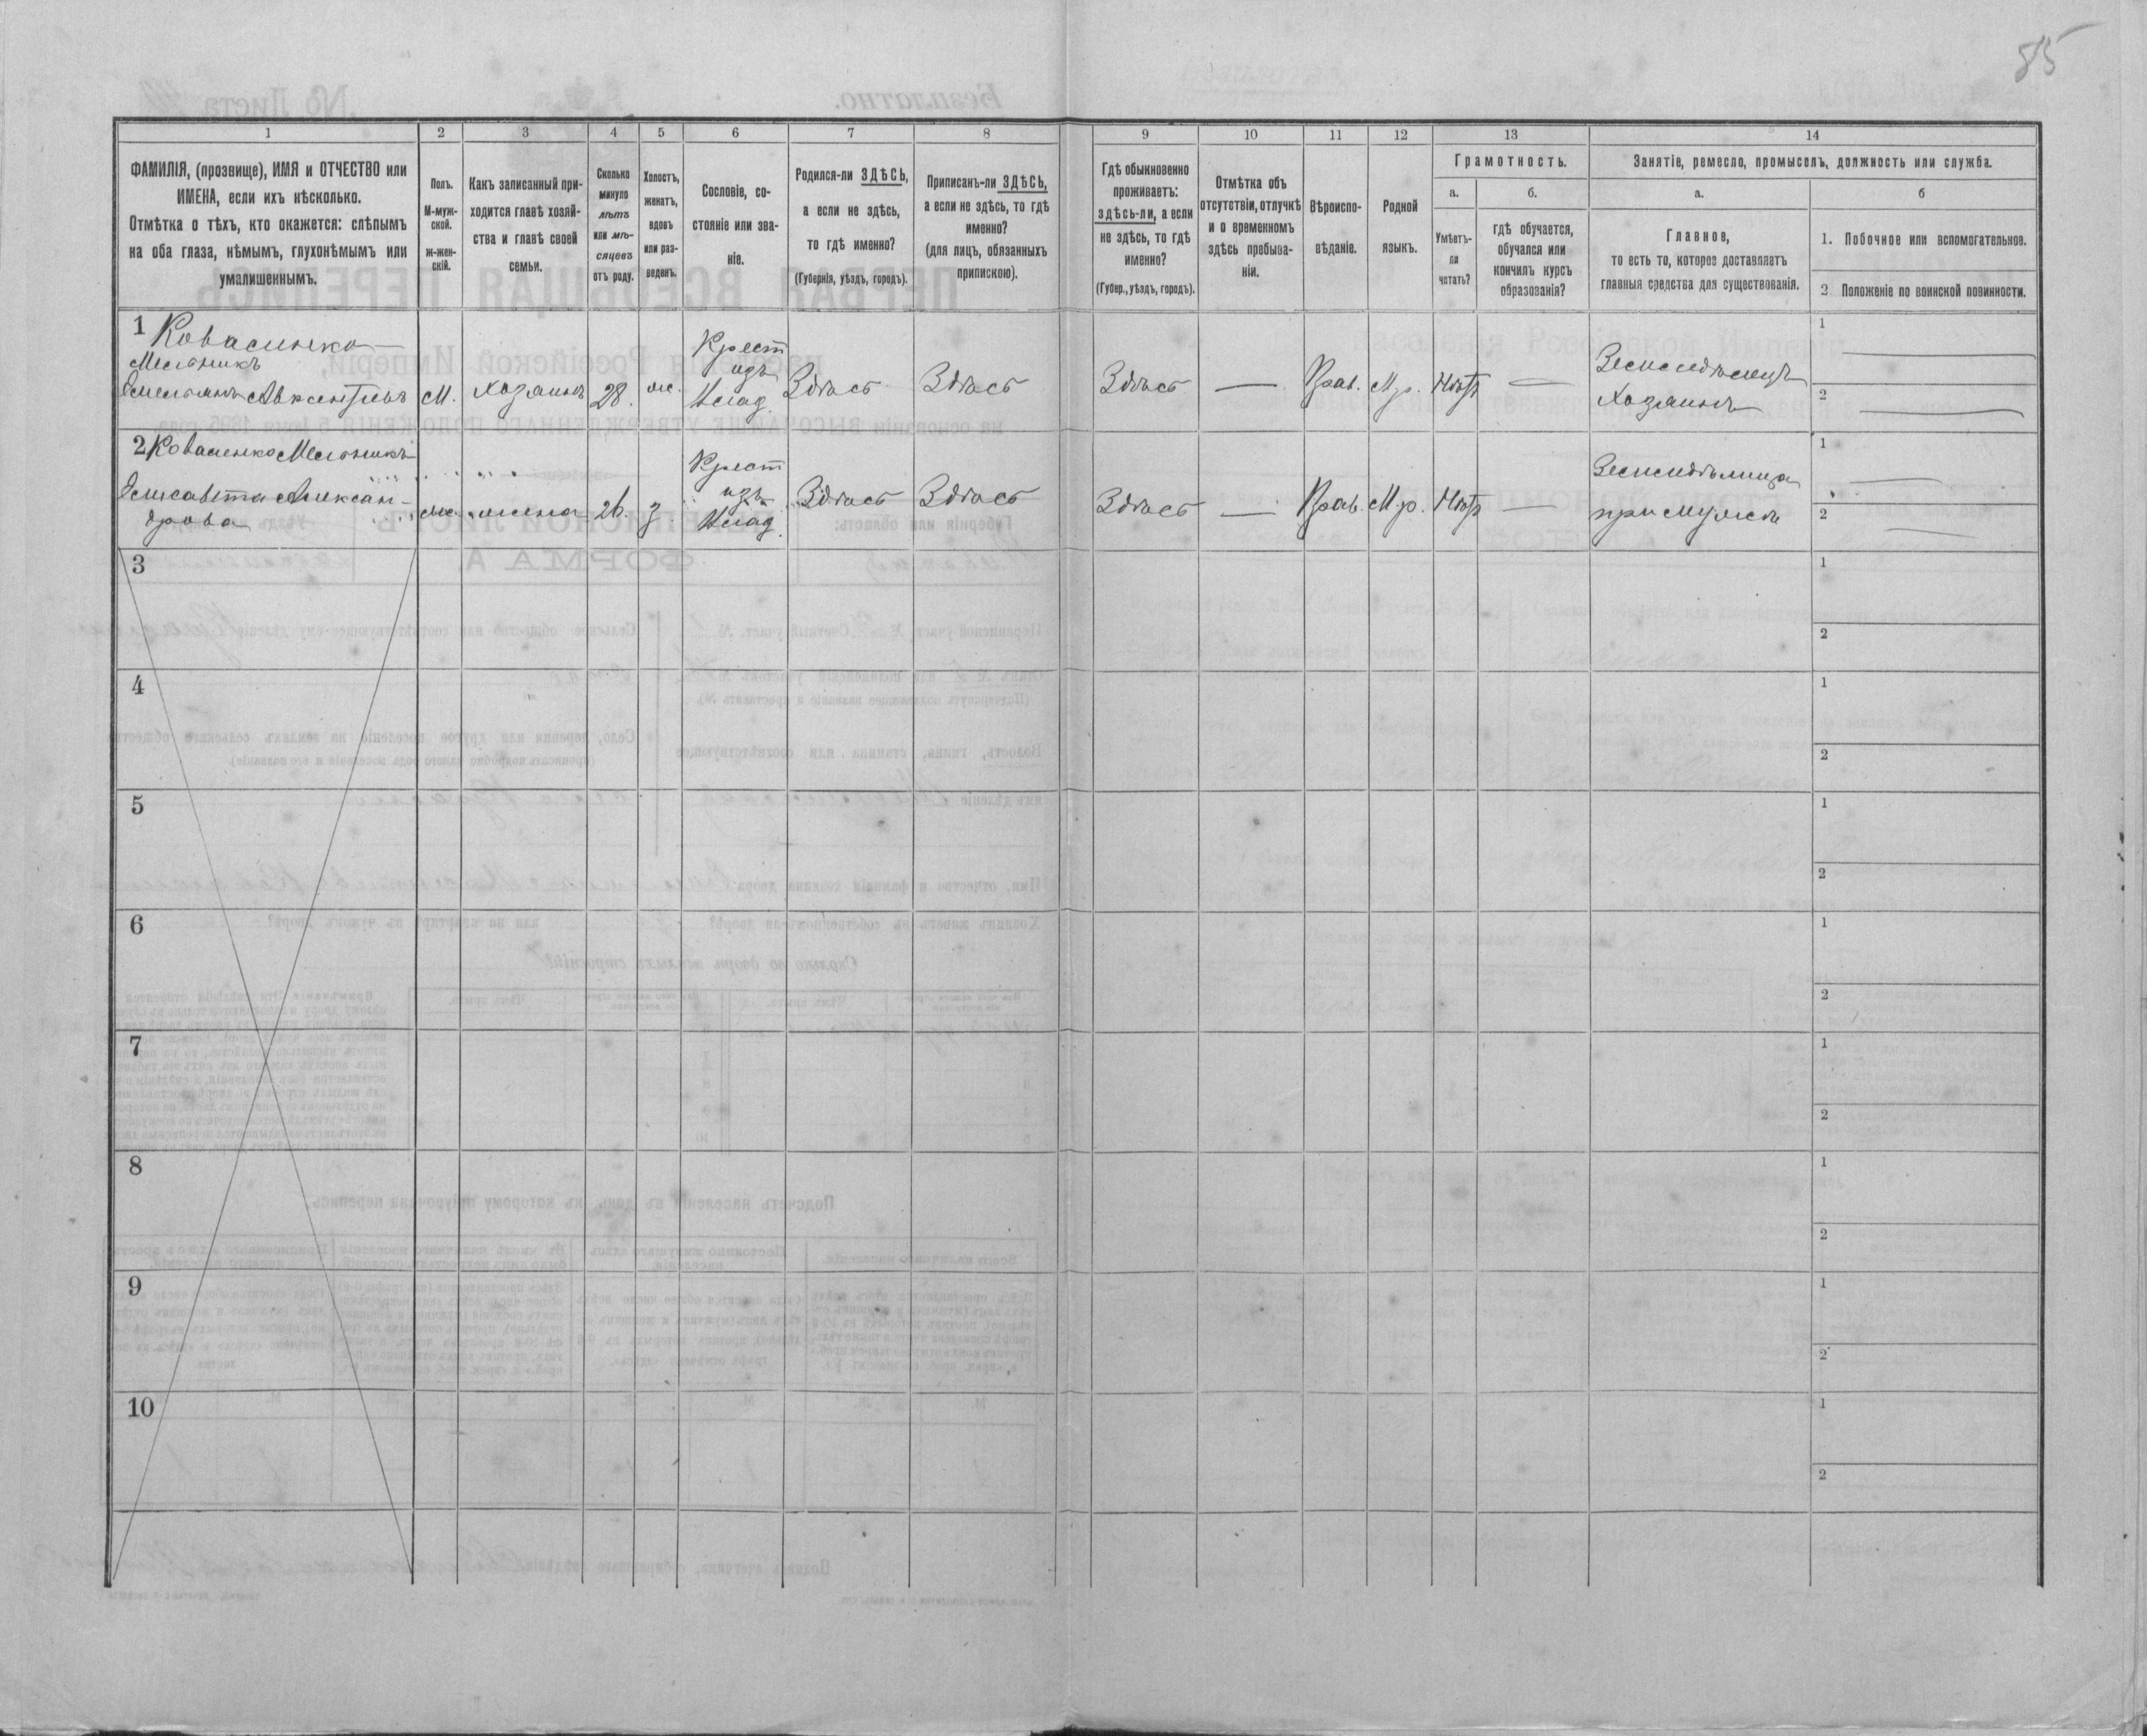 85
1 2 3 4 5 6 7 8 9 10 11 12 13 14
ФАМИЛІЯ, (прозвище), ИМЯ и ОТЧЕСТВО или
ИМЕНА, если ихъ нѣсколько.
Отмѣтка о тѣхъ, кто окажется: слѣпымъ
на оба глаза, нѣмымъ, глухонѣмымъ или
умалишеннымъ.
Полъ.
М-муж-
ской.
ж-жен-
скій.
Какъ записанный при-
ходится главѣ хозяй-
ства и главѣ своей
семьи.
Сколько
минуло
лѣтъ
или мѣ-
сяцевъ
отъ роду.
Холостъ,
женатъ,
вдовъ
или раз-
веденъ.
Сословіе, со-
стояніе или зва-
ніе.
Родился-ли ЗДѢСЬ,
а если не здѣсь,
то гдѣ именно?
(Губернія, уѣздъ, городъ).
Приписанъ-ли ЗДѢСЬ,
а если не здѣсь, то гдѣ
именно?
(для лицъ, обязанныхъ
припискою).
Гдѣ обыкновенно
проживаетъ:
здѣсь-ли, а если
не здѣсь, то гдѣ
именно?
(Губер., уѣздъ, городъ).
Отмѣтка объ
отсутствіи, отлучкѣ
и о временномъ
здѣсь пребыва-
ніи.
Вѣроиспо-
вѣданіе.
Родной
языкъ.
Грамотность.
а.
Умѣетъ-
ли
читать?
б.
гдѣ обучается,
обучался или
кончилъ курсъ
образованія?
Занятіе, ремесло, промыселъ, должность или служба.
а.
Главное,
то есть то, которое доставляетъ
главныя средства для существованія.
б
1. Побочное или вспомогательное.
2 Положеніе по воинской повинности.
1 Коваленко
Мельникъ
Емельянъ Авксентіевъ М. Хозяинъ 28. ж. Крест изъ Влад. Здѣсь Здѣсь Здѣсь — Прав. М.р. Нѣтъ — Земледѣлецъ
Хозяинъ
1 —
2 —
2 Коваленко Мельникъ
Елисавета Алексан-
дрова ж. жена 26. з. Крест изъ Влад. Здѣсь Здѣсь Здѣсь — Прав. М.р. Нѣтъ — Земледѣлица
при мужѣ
1 —
2 —
3 1
2
4 1
2
5 1
2
6 1
2
7 1
2
8 1
2
9 1
2
10 1
2